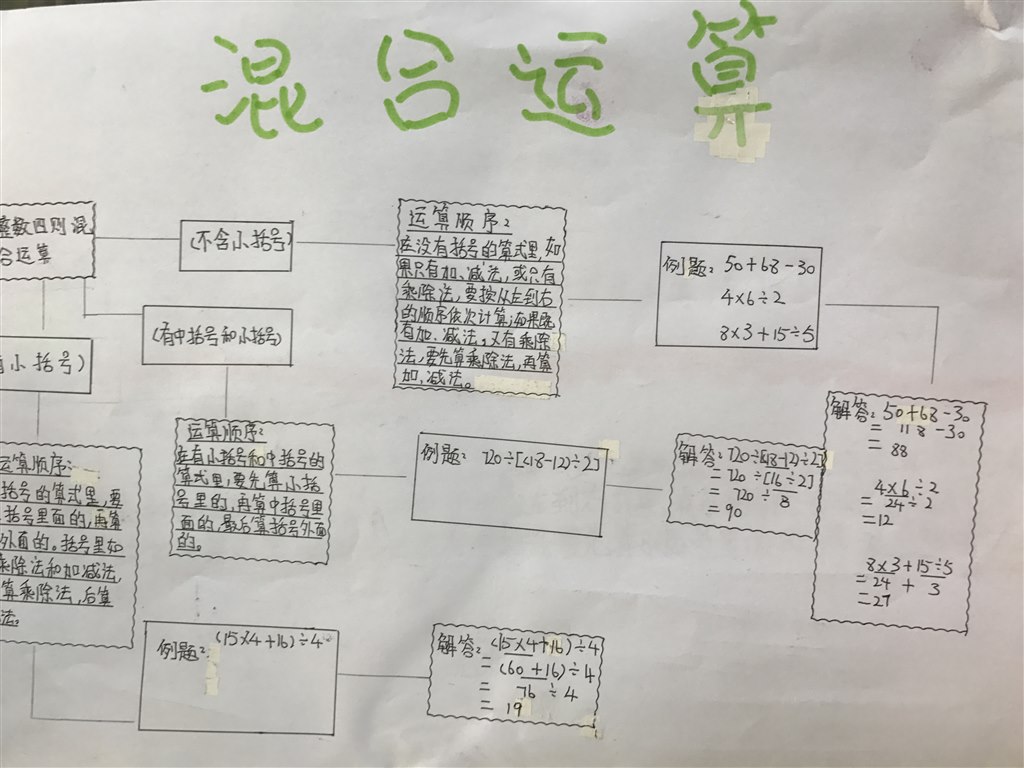 混合运算
整数四则混
合运算
(不含小括号)
运算顺序:
在没有括号的算式里,如
果只有加、减法,或只有
乘除法,要按从左到右
的顺序依次计算;如果既
有加、减法,又有乘除
法,要先算乘除法,再算
加,减法。
例题: 50+68-30
4×6÷2
8×3+15÷5
(有中括号和小括号)
小括号)
运算顺序:
在有小括号和中括号的
算式里,要先算小括
号里的,再算中括号里
面的,最后算括号外面
的。
例题: 720÷[(18-12)÷2]
解答: 720÷[(18-12)÷2]
=720÷[16÷2]
=720÷8
=90
解答: 50+68-30
= 118-30
= 88
4×6÷2
=24÷2
=12
8×3+15÷5
=24 + 3
=27
运算顺序:
括号的算式里,要
括号里面的,再算
外面的。括号里如
乘除法和加减法,
算乘除法,后算
法。
例题: (15×4+16)÷4
解答: (15×4+16)÷4
= (60+16)÷4
= 76÷4
= 19